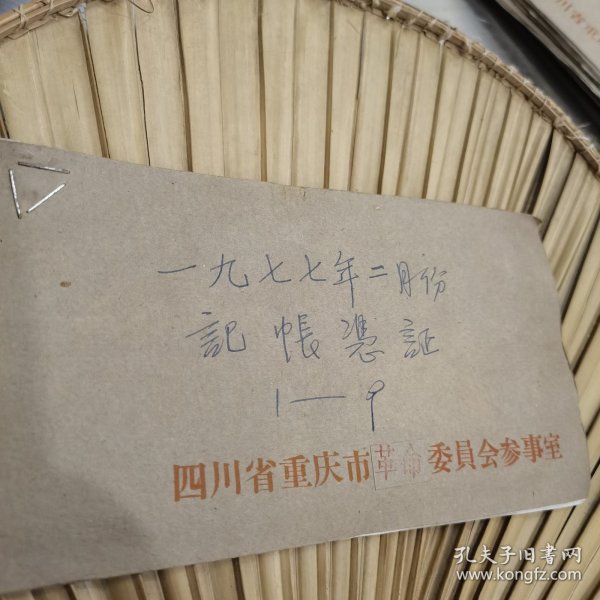 一九七七年二月份
記帳憑証
1—9
四川省重庆市革命委員会参事室
孔夫子旧書网
www.kongfz.com